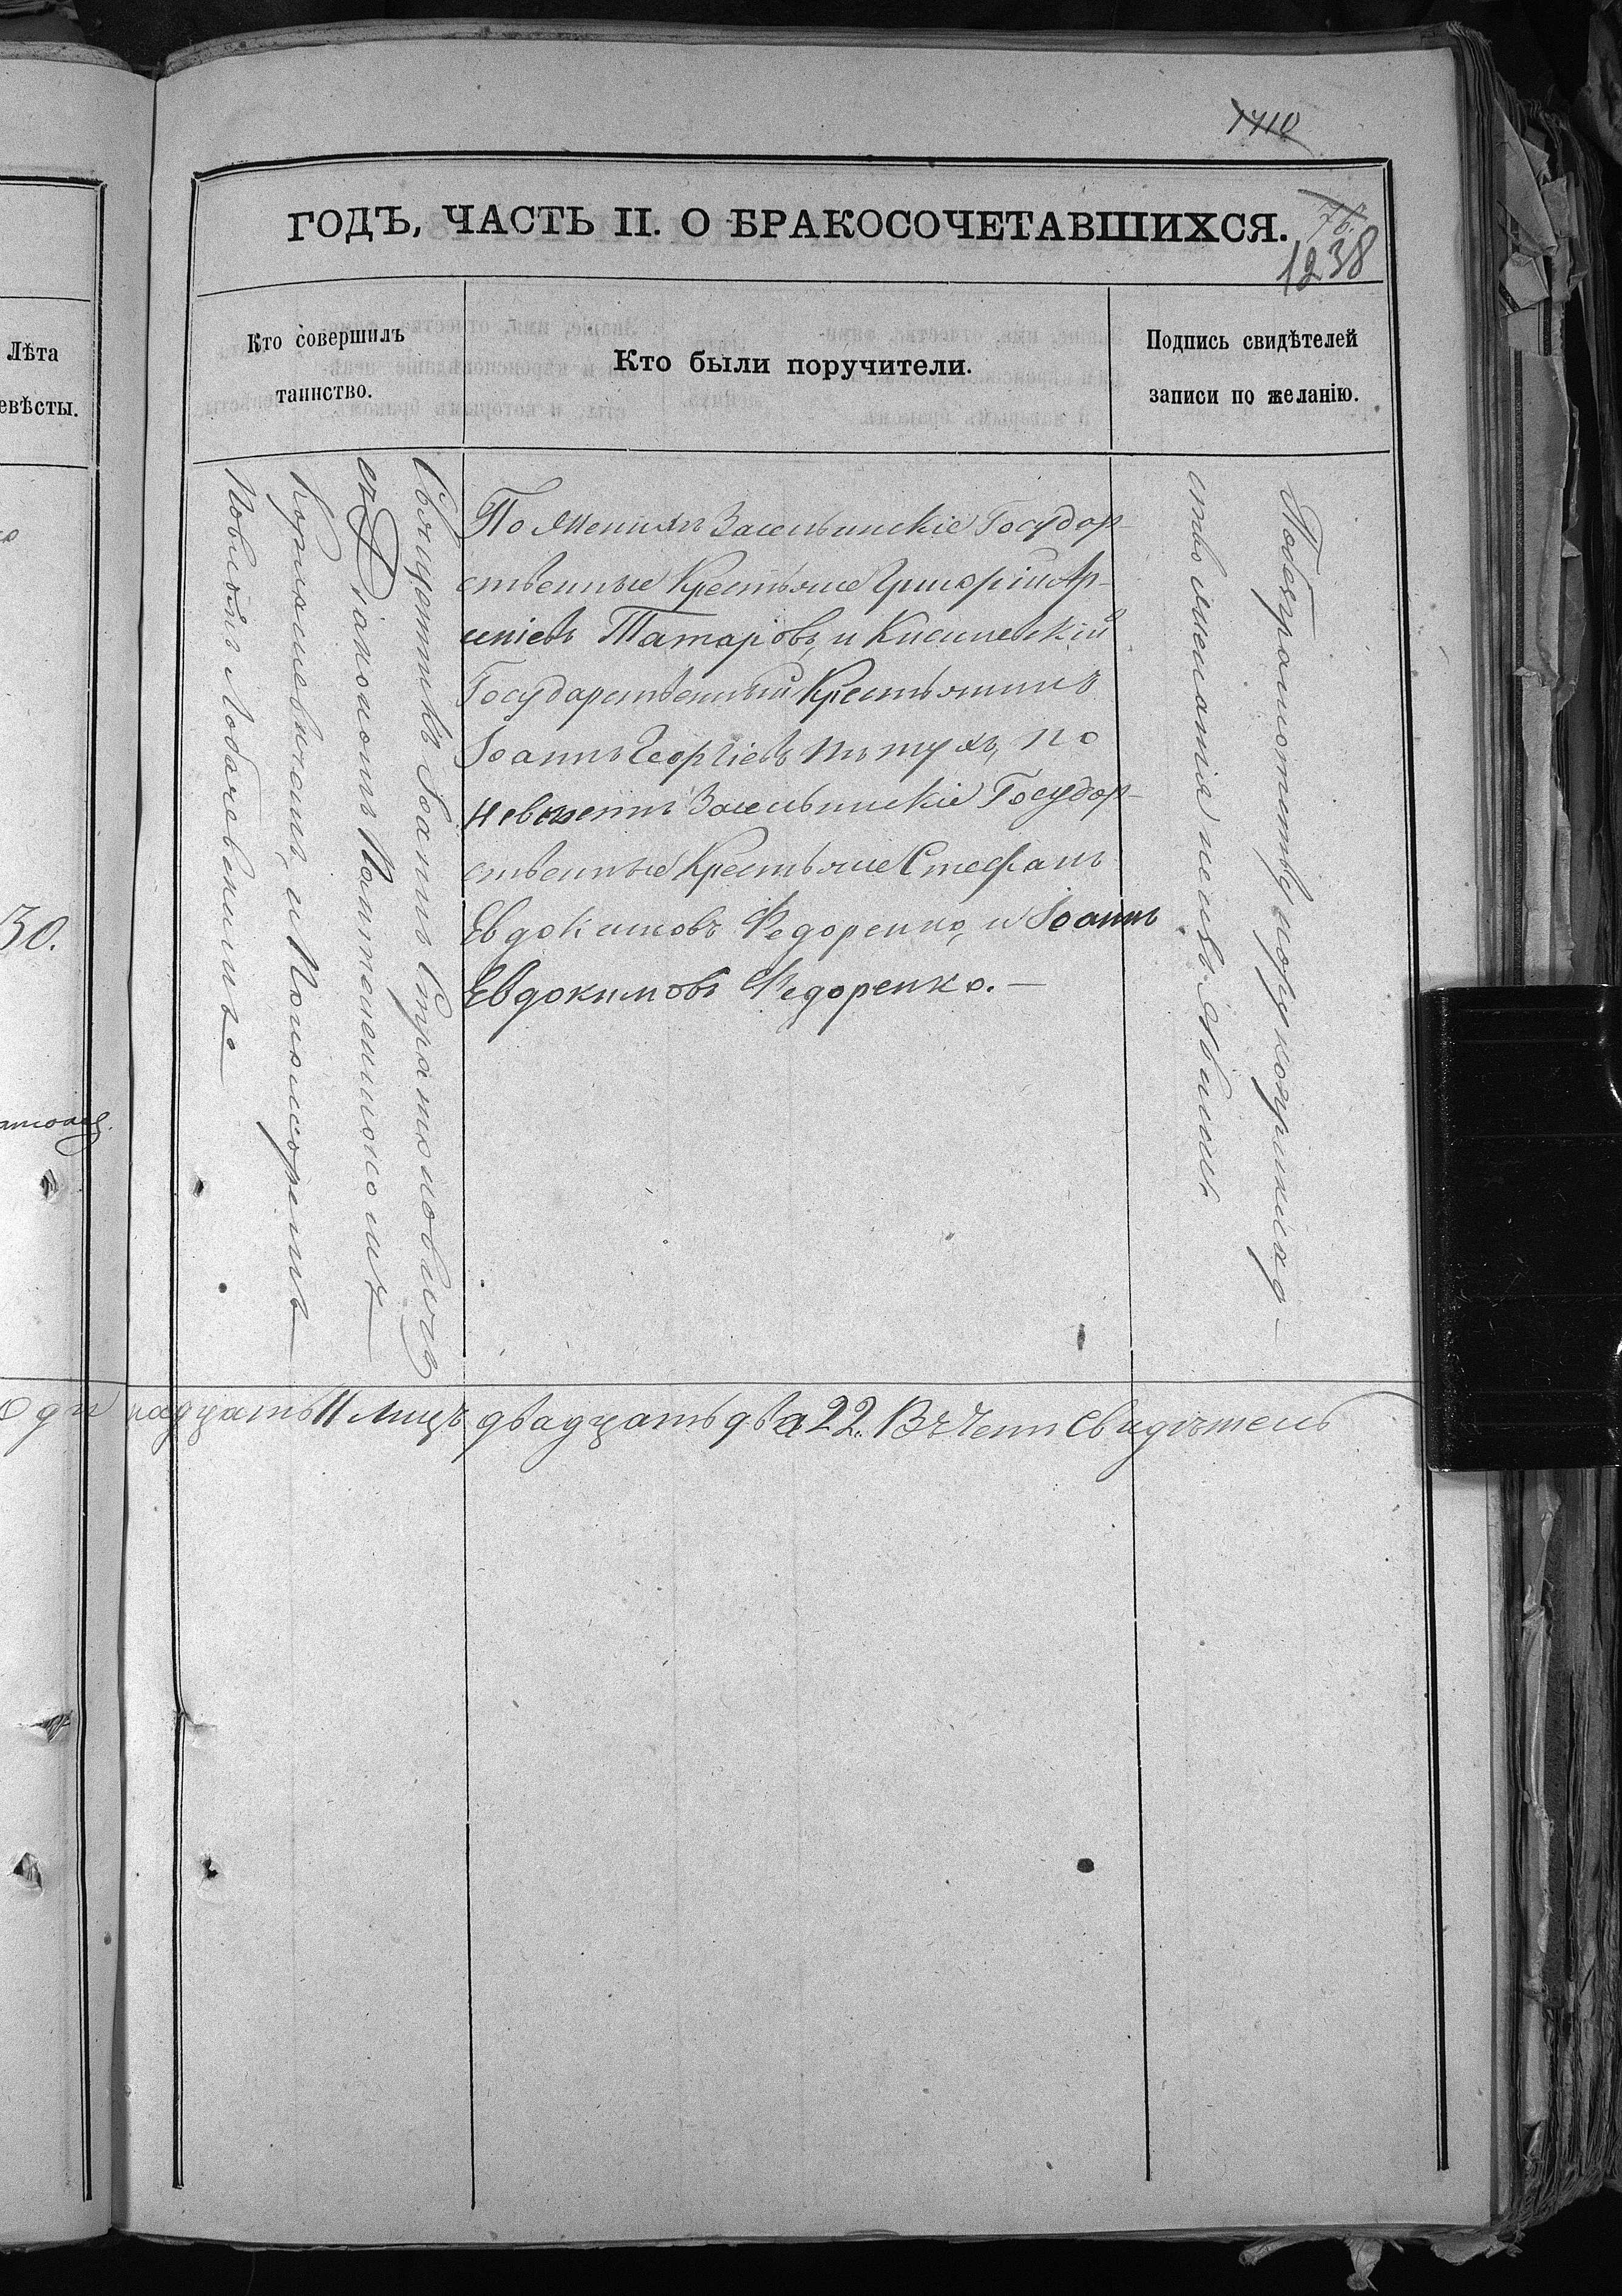 1410
ГОДЪ, ЧАСТЬ II. О БРАКОСОЧЕТАВШИХСЯ.
76.
1238
Лѣта
евѣсты.
Кто совершилъ
таинство.
Кто были поручители.
Подпись свидѣтелей
записи по желанію.
30.
Священникъ Іоаннъ Стратоновичъ
съ Діакономъ
и Пономоремъ
Павломъ Лобачевскимъ.
По Женихѣ Засельинскіе Государ-
ственные Крестьяне Григорій Ар-
сеніевъ Татаровъ, и Кисилевскій
Государственный Крестьянинъ
Іоаннъ Георгіевъ Пѣтухъ, по
Невѣстѣ Засельинскіе Государ-
ственные Крестьяне Стефанъ
Евдокимовъ Федоренко, и Іоаннъ
Евдокимовъ Федоренко.—
По безграмотству
одинадцать 11 лицъ двадцать два 22. Въ чемъ Свидѣтель